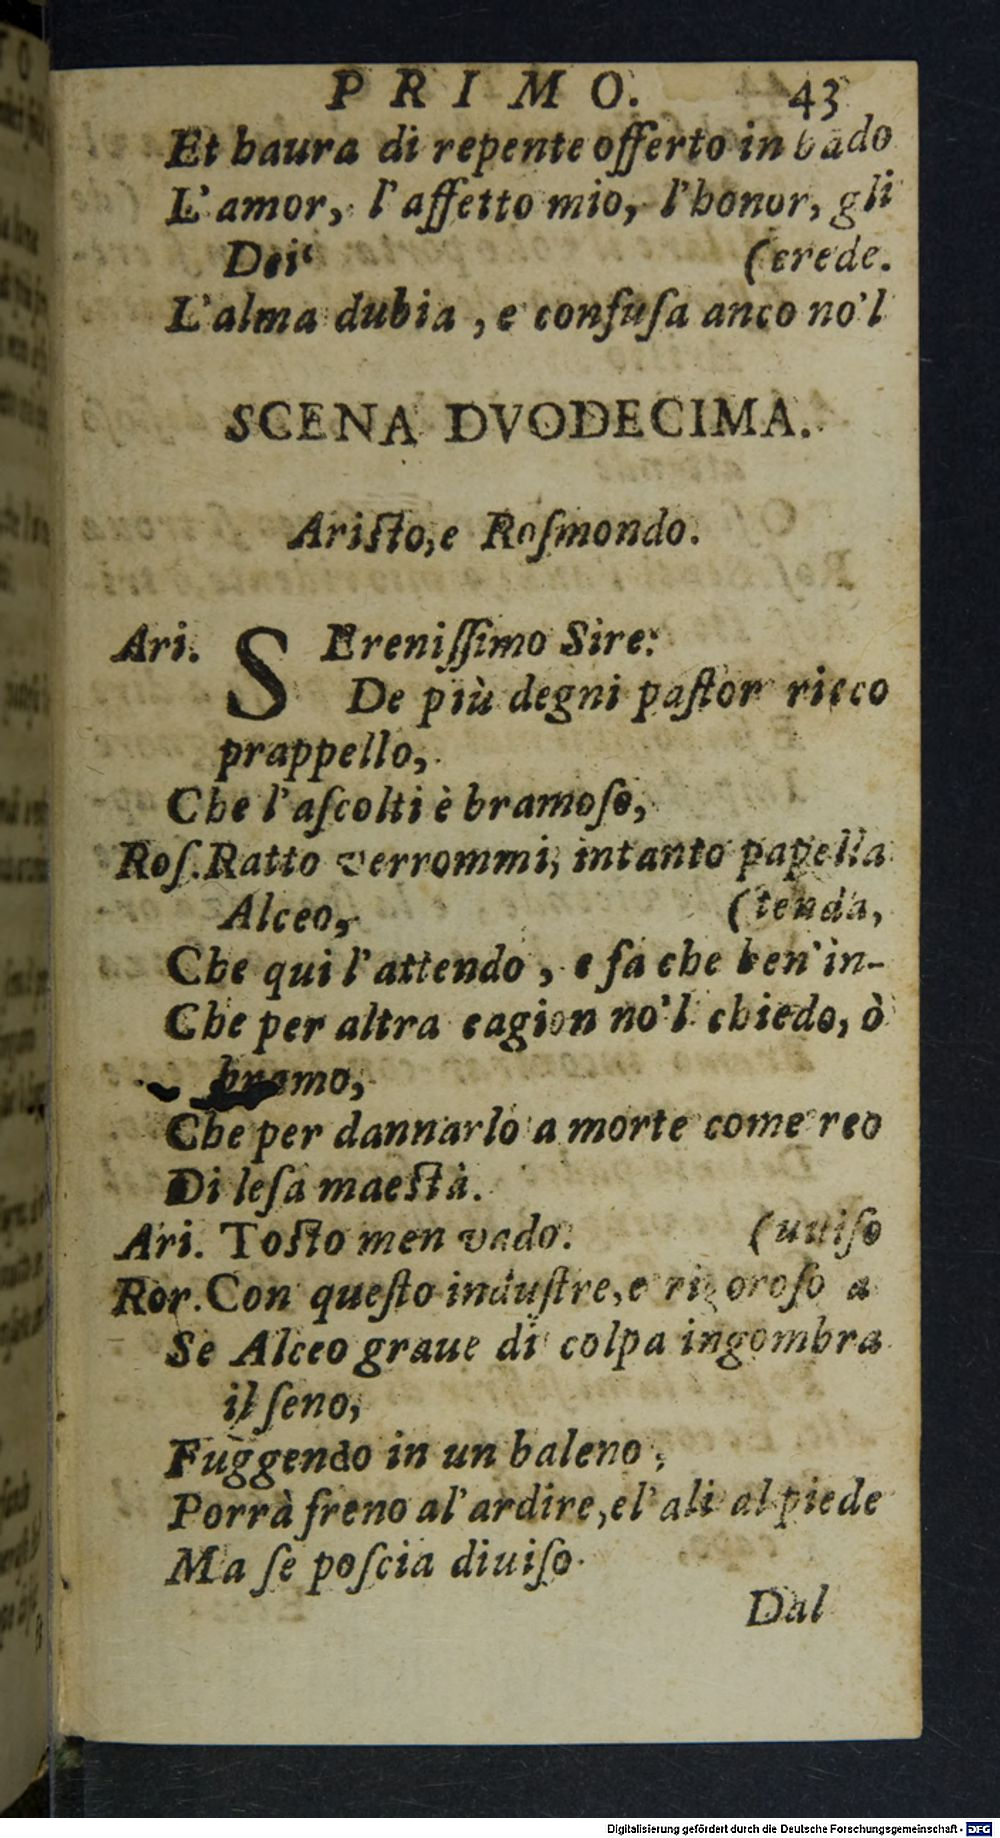 PRIMO. 43
Et haura di repente offerto in bãdo
L'amor, l'affetto mio, l'honor, gli
Dei (crede.
L'alma dubia, e confuſa anco no'l
SCENA DVODECIMA.
Ariſto, e Roſmondo.
Ari. SEreniſſimo Sire:
De più degni paſtor ricco
prappello,
Che l'aſcolti è bramoſo,
Roſ. Ratto verrommi, intanto papella
Alceo, (tenda,
Che qui l'attendo, e fa che ben'in-
Che per altra cagion no'l chiedo, ò
bramo,
Che per dannarlo a morte come reo
Di leſa maeſtà.
Ari. Toſto men vado. (uuiſo
Ror. Con queſto induſtre, e rigoroſo a
Se Alceo graue di colpa ingombra
il ſeno,
Fuggendo in un baleno,
Porrà freno al'ardire, el'ali al piede
Ma ſe poſcia diuiſo
Dal
Digitalisierung gefördert durch die Deutsche Forschungsgemeinschaft - DFG